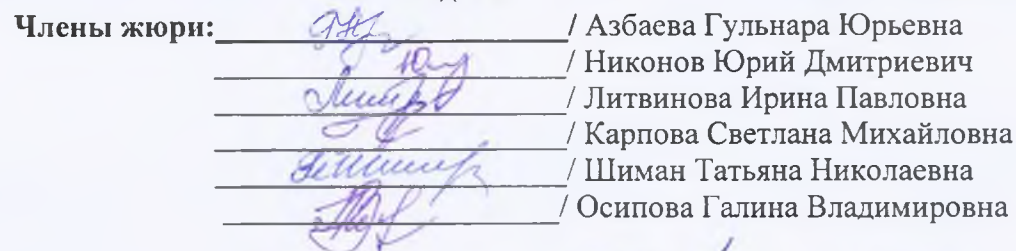 Члены жюри: / Азбаева Гульнара Юрьевна
/ Никонов Юрий Дмитриевич
/ Литвинова Ирина Павловна
/ Карпова Светлана Михайловна
/ Шиман Татьяна Николаевна
/ Осипова Галина Владимировна